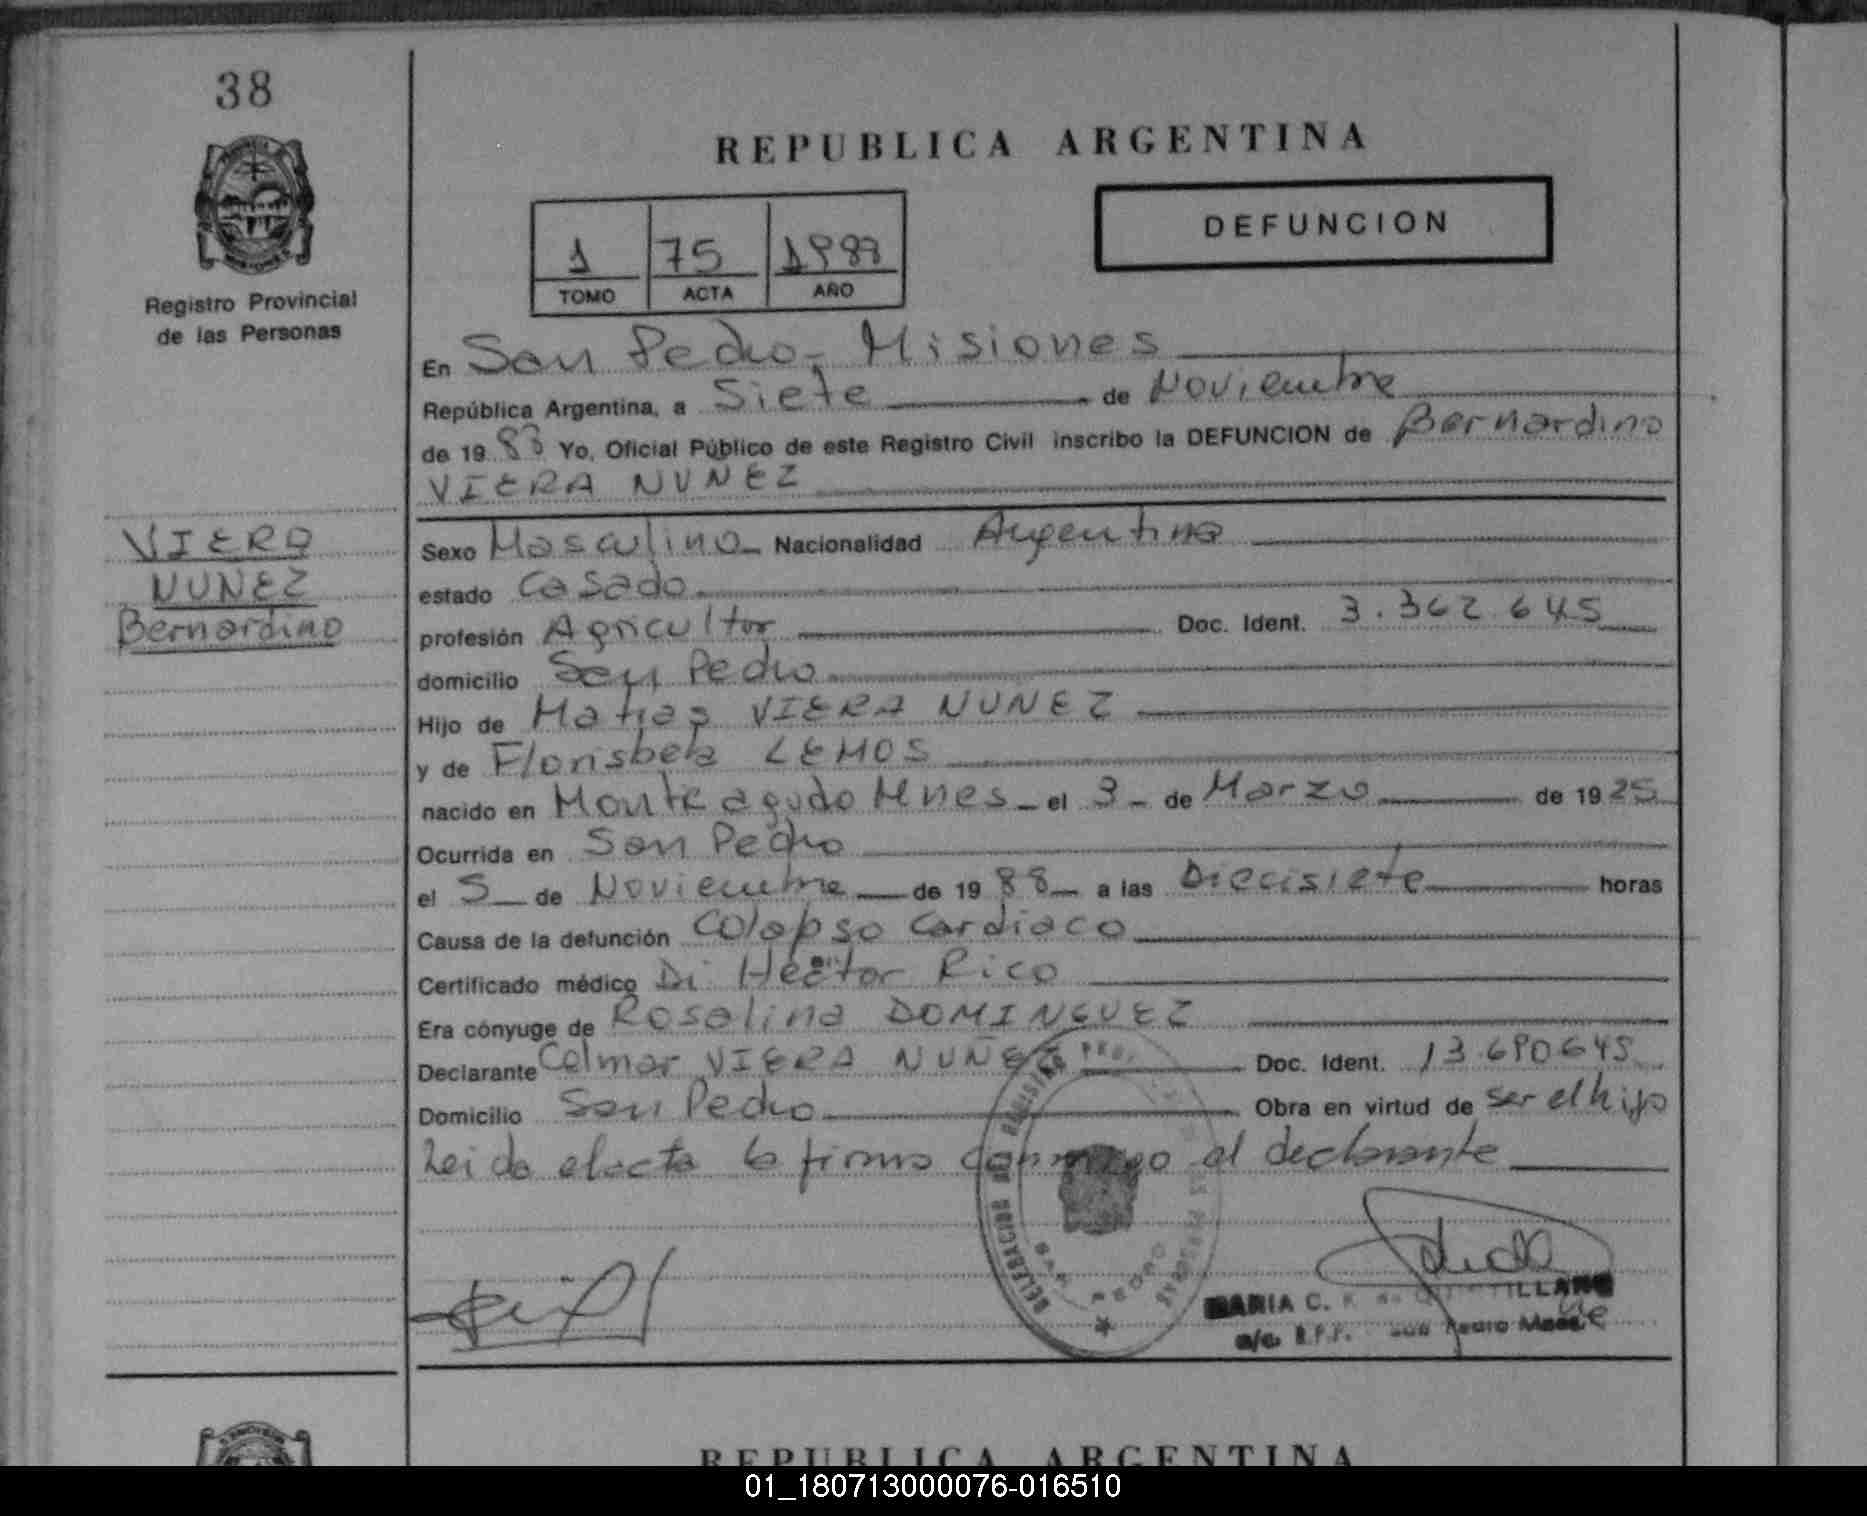 38
Registro Provincial
de las Personas
REPUBLICA ARGENTINA
DEFUNCION
1 75 1988
TOMO ACTA AÑO
En San Pedro - Misiones
República Argentina, a Siete de Noviembre
de 19 88 Yo, Oficial Público de este Registro Civil inscribo la DEFUNCION de Bernardino
VIERA NUNEZ
VIERA
NUNEZ
Bernardino
Sexo Masculino Nacionalidad Argentina
estado Casado
profesión Agricultor Doc. Ident. 3.362.645
domicilio San Pedro
Hijo de Matias VIERA NUNEZ
y de Florisbela LEMOS
nacido en Monteagudo Mnes el 3 de Marzo de 19 25
Ocurrida en San Pedro
el 5 de Noviembre de 19 88 a las Diecisiete horas
Causa de la defunción Colapso Cardiaco
Certificado médico Dr Hector Rico
Era cónyuge de Rosalina DOMINGUEZ
Declarante Celmar VIERA NUÑEZ Doc. Ident. 13.690645
Domicilio San Pedro Obra en virtud de ser el hijo
Leida el acta la firma conmigo el declarante
DELEGACION
SAN PEDRO
MARIA C.
a/c. R.P.P. San Pedro
REPUBLICA ARGENTINA
01_180713000076-016510